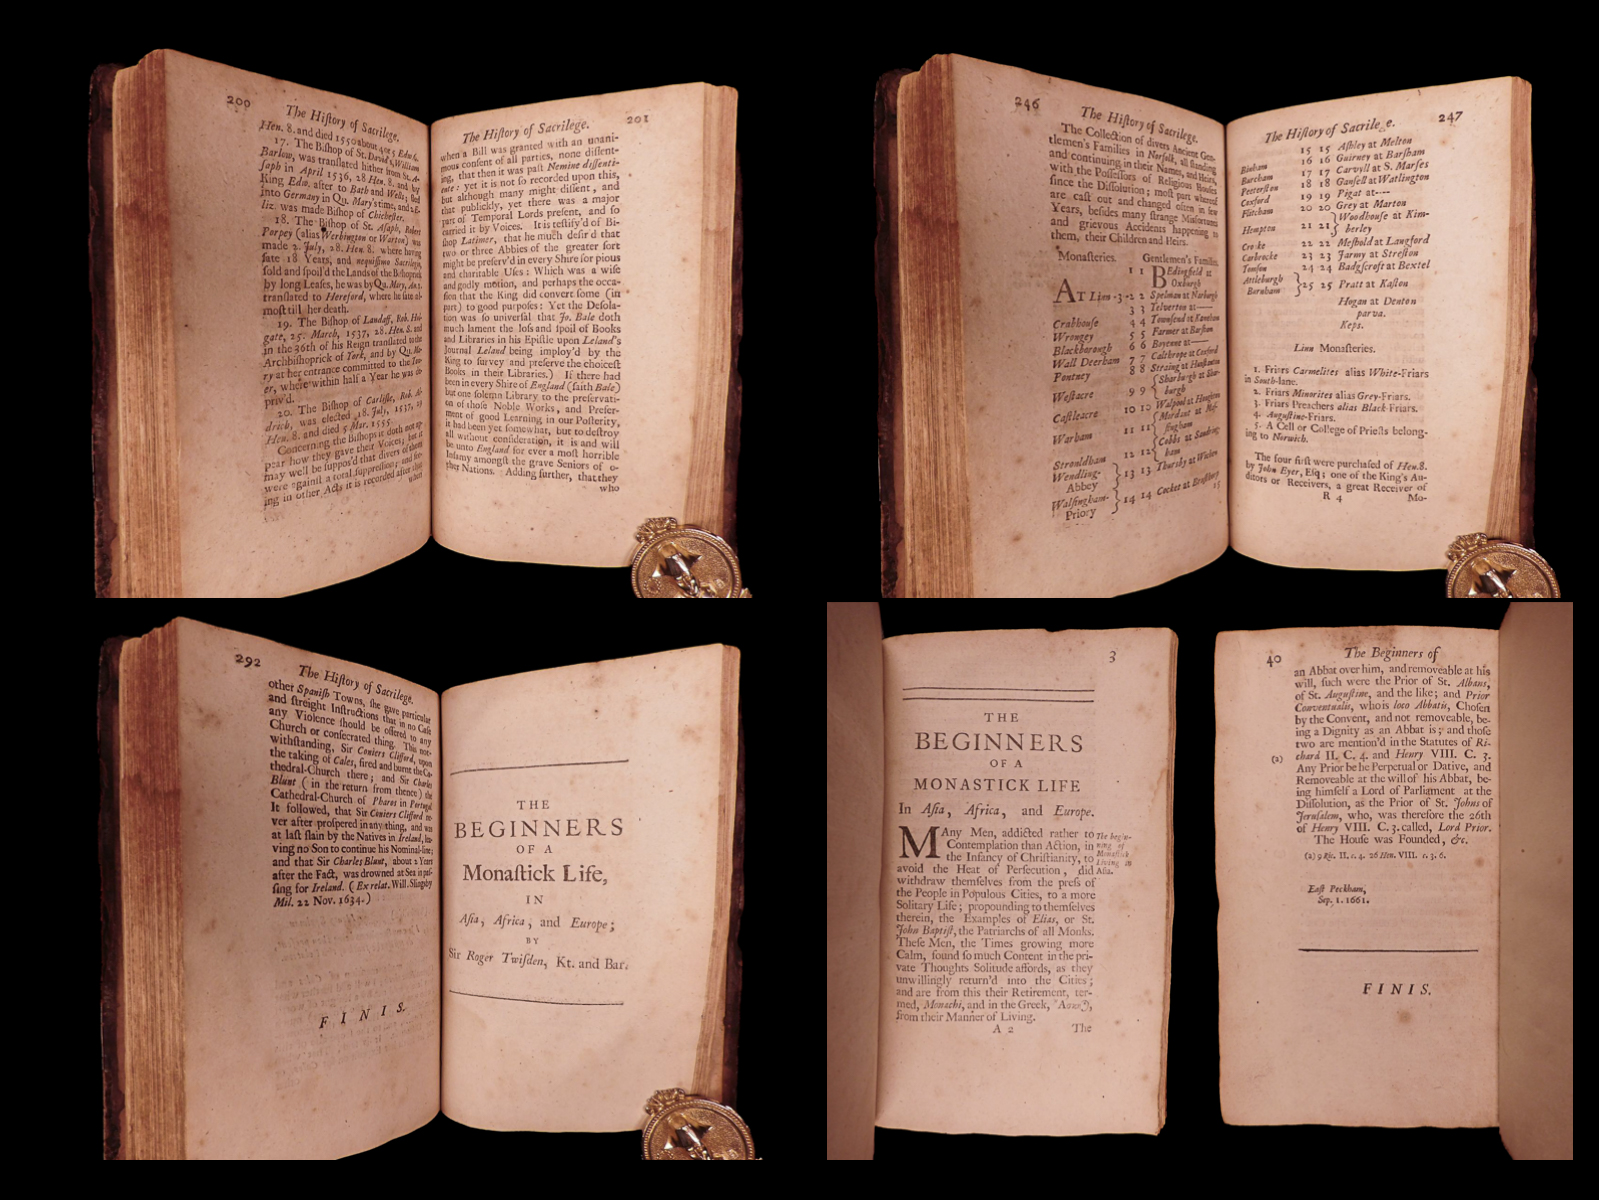 200
The Hiſtory of Sacrilege.
Hen. 8. and died 1550 about 4 or 5 Edw. 6.
17. The Biſhop of St. David's, William
Barlow, was tranſlated hither from St. A-
ſaph in April 1536, 28 Hen. 8. and by
King Edw. after to Bath and Wells; fled
into Germany in Qu. Mary's time, and 2 E-
liz. was made Biſhop of Chicheſter.
18. The Biſhop of St. Aſaph, Robert
Porpey (alias Warbington or Warton) was
made 2. July, 28. Hen. 8. where having
ſate 18 Years, and nequiſſimo Sacrilegio,
ſold and ſpoil'd the Lands of the Biſhoprick
by long Leaſes, he was by Qu. Mary, An. 1.
tranſlated to Hereford, where he ſate al-
moſt till her death.
19. The Biſhop of Landaff, Rob. Hol-
gate, 25. March, 1537, 28. Hen. 8. and
in the 36th of his Reign tranſlated to the
Archbiſhoprick of York, and by Qu. Ma-
ry at her entrance committed to the Tow-
er, where within half a Year he was de-
priv'd.
20. The Biſhop of Carliſle, Rob. Al-
drich, was elected 18. July, 1537, 29
Hen. 8. and died 5 Mar. 1555.
Concerning the Biſhops it doth not ap-
pear how they gave their Voices; but it
may well be ſuppos'd that divers of them
were againſt a total ſuppreſſion; and ſee-
ing in other Acts it is recorded after that
when
201
The Hiſtory of Sacrilege.
when a Bill was granted with an unani-
mous conſent of all parties, none diſſent-
ing, that then it was paſt Nemine diſſenti-
ente: yet it is not ſo recorded upon this,
but although many might diſſent, and
that publickly, yet there was a major
part of Temporal Lords preſent, and ſo
carried it by Voices. It is teſtify'd of Bi-
ſhop Latimer, that he much deſir'd that
two or three Abbies of the greater ſort
might be preſerv'd in every Shire for pious
and charitable Uſes: Which was a wiſe
and godly motion, and perhaps the occa-
ſion that the King did convert ſome (in
part) to good purpoſes: Yet the Deſola-
tion was ſo univerſal that Jo. Bale doth
much lament the loſs and ſpoil of Books
and Libraries in his Epiſtle upon Leland's
Journal Leland being imploy'd by the
King to ſurvey and preſerve the choiceſt
Books in their Libraries.) If there had
been in every Shire of England (ſaith Bale)
but one ſolemn Library to the preſervati-
on of thoſe Noble Works, and Prefer-
ment of good Learning in our Poſterity,
it had been yet ſomewhat, but to deſtroy
all without conſideration, it is and will
be unto England for ever a moſt horrible
Infamy amongſt the grave Seniors of o-
ther Nations. Adding further, that they
who
246
The Hiſtory of Sacrilege.
The Collection of divers Ancient Gen-
tlemen's Families in Norfolk, all ſtanding
and continuing in their Names, and Heirs,
with the Poſſeſſors of Religious Houſes
ſince the Diſſolution; moſt part whereof
are caſt out and changed often in few
Years, beſides many ſtrange Misfortunes
and grievous Accidents happening to
them, their Children and Heirs.
Monaſteries. Gentlemen's Families.
1 1 BEdingfield at
Oxburgh
AT Linn -3-2 2 Spelman at Narburgh
3 3 Yelverton at——
Crabhouse 4 4 Townſend at Raneham
Wrongey 5 5 Farmer at Barſham
Blackborough 6 6 Boyenne at——
Wall Deerham 7 7 Calthrope at Coxford
Pentney 8 8 Straing at Hunſtanton
Weſtacre 9 9 {Sharburgh at Shar-
burgh
Caſtleacre 10 10 Walpool at Houghton
Warham 11 11 {Mordant at Maſ-
ſingham
Strouldham 12 12 {Cobbs at Sandring-
ham
Wendling-
Abbey } 13 13 Thursby at Wicken
Walſingham-
Priory } 14 14 Cocket at Brunſthorp
15
247
The Hiſtory of Sacrile e.
15 15 Aſhley at Melton
Binham 16 16 Guirney at Barſham
Burcham 17 17 Carvyll at S. Marſes
Peterſton 18 18 Ganſell at Watlington
Coxford 19 19 Pigat at----
Flitcham 20 20 Grey at Marton
Hempton 21 21 } Woodhouſe at Kim-
berley
Cro ke 22 22 Meſhold at Langford
Carbrocke 23 23 Jarmy at Streſton
Tomſon 24 24 Badgſcroft at Bextel
Attleburgh
Burnham } 25 25 Pratt at Kaſton
Hogan at Denton
parva.
Keps.
Linn Monaſteries.
1. Friars Carmelites alias White-Friars
in South-lane.
2. Friars Minorites alias Grey-Friars.
3. Friars Preachers alias Black-Friars.
4. Auguſtine-Friars.
5. A Cell or College of Prieſts belong-
ing to Norwich.
The four firſt were purchaſed of Hen. 8.
by John Eyer, Eſq; one of the King's Au-
ditors or Receivers, a great Receiver of
R 4 Mo-
292
The Hiſtory of Sacrilege.
other Spaniſh Towns, ſhe gave particular
and ſtreight Inſtructions that in no Caſe
any Violence ſhould be offered to any
Church or conſecrated thing. This not-
withſtanding, Sir Coniers Clifford, upon
the taking of Cales, fired and burnt the Ca-
thedral-Church there; and Sir Charles
Blunt (in the return from thence) the
Cathedral-Church of Pharos in Portugal
It followed, that Sir Coniers Clifford ne-
ver after proſpered in any thing, and was
at laſt ſlain by the Natives in Ireland, lea-
ving no Son to continue his Nominal-line;
and that Sir Charles Blunt, about 2 Years
after the Fact, was drowned at Sea in paſ-
ſing for Ireland. (Ex relat. Will. Slingsby
Mil. 22 Nov. 1634.)
FINIS.
THE
BEGINNERS
OF A
Monaſtick Life,
IN
Aſia, Africa, and Europe;
BY
Sir Roger Twiſden, Kt. and Bar.
3
THE
BEGINNERS
OF A
MONASTICK LIFE
In Aſia, Africa, and Europe.
MAny Men, addicted rather to
Contemplation than Action, in
the Infancy of Chriſtianity, to
avoid the Heat of Perſecution, did
The begin-
ning of
Monaſtick
Living in
Aſia.
withdraw themſelves from the preſs of
the People in Populous Cities, to a more
Solitary Life; propounding to themſelves
therein, the Examples of Elias, or St.
John Baptiſt, the Patriarchs of all Monks.
Theſe Men, the Times growing more
Calm, found ſo much Content in the pri-
vate Thoughts Solitude affords, as they
unwillingly return'd into the Cities;
and are from this their Retirement, ter-
med, Monachi, and in the Greek,
from their Manner of Living.
A 2 The
40
The Beginners of
an Abbat over him, and removeable at his
will, ſuch were the Prior of St. Albans,
of St. Auguſtine, and the like; and Prior
Conventualis, who is loco Abbatis, Choſen
by the Convent, and not removeable, be-
ing a Dignity as an Abbat is; and thoſe
two are mention'd in the Statutes of Ri-
(2) chard II. C. 4. and Henry VIII. C. 3.
Any Prior be he Perpetual or Dative, and
Removeable at the will of his Abbat, be-
ing himſelf a Lord of Parliament at the
Diſſolution, as the Prior of St. Johns of
Jeruſalem, who, was therefore the 26th
of Henry VIII. C. 3. called, Lord Prior.
The Houſe was Founded, &c.
(2) 9 Ric. II. c. 4. 26 Hen. VIII. c. 3. 6.
Eaſt Peckham,
Sep. 1. 1661.
FINIS.